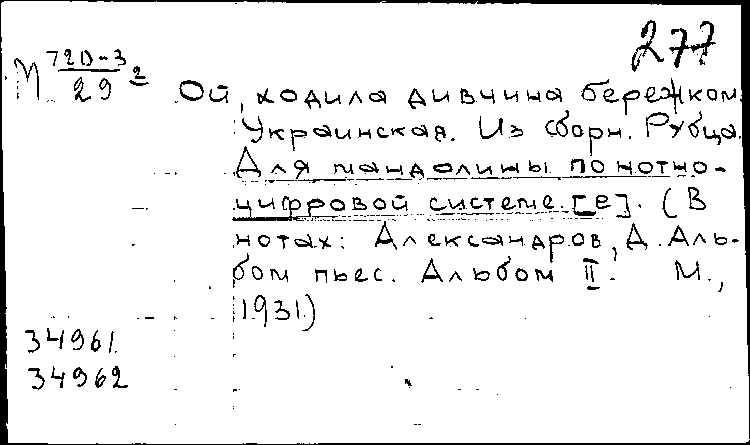 277
М 72D-3
29 2
Ой, ходила дивчина бережком.
Украинская. Из сборн. Рубца.
Для мандолины по нотно-
цифровой системе. [e]. (В
нотах: Александров, Д. Аль-
бом пьес. Альбом II. М.,
1931)
34961
34962